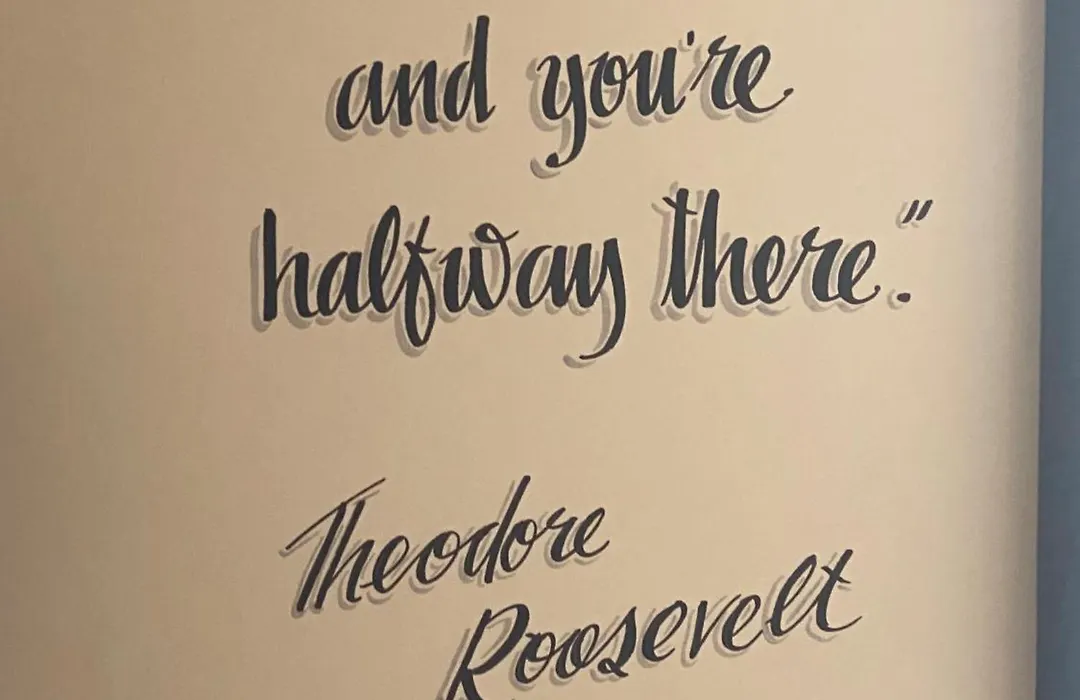 and you're
halfway there."
Theodore
Roosevelt